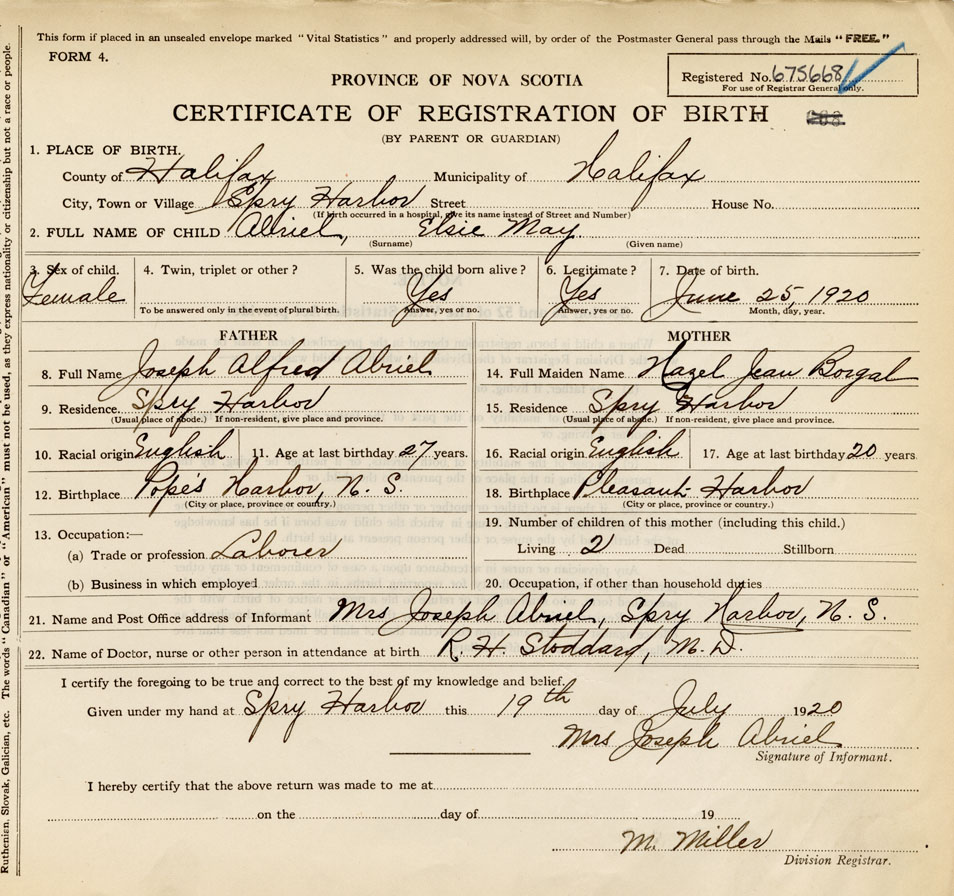 This form if placed in an unsealed envelope marked "Vital Statistics" and properly addressed will, by order of the Postmaster General pass through the Mails "FREE."
FORM 4.
Registered No. 675668
For use of Registrar General only.
PROVINCE OF NOVA SCOTIA
CERTIFICATE OF REGISTRATION OF BIRTH
(BY PARENT OR GUARDIAN)
1. PLACE OF BIRTH.
County of Halifax Municipality of Halifax
City, Town or Village Spry Harbor Street House No.
(If birth occurred in a hospital, give its name instead of Street and Number)
2. FULL NAME OF CHILD Abriel, Elsie May
(Surname) (Given name)
3. Sex of child. 4. Twin, triplet or other? 5. Was the child born alive? 6. Legitimate? 7. Date of birth.
Female Yes Yes June 25, 1920
To be answered only in the event of plural birth. Answer, yes or no. Answer, yes or no. Month, day, year.
FATHER
8. Full Name Joseph Alfred Abriel
9. Residence. Spry Harbor
(Usual place of abode.) If non-resident, give place and province.
10. Racial origin English 11. Age at last birthday 27 years.
12. Birthplace Pope's Harbor, N. S.
(City or place, province or country.)
13. Occupation:—
(a) Trade or profession Laborer
(b) Business in which employed
MOTHER
14. Full Maiden Name Hazel Jean Borgal
15. Residence Spry Harbor
(Usual place of abode.) If non-resident, give place and province.
16. Racial origin English 17. Age at last birthday 20 years
18. Birthplace Pleasant Harbor
(City or place, province or country.)
19. Number of children of this mother (including this child.)
Living 2 Dead Stillborn
20. Occupation, if other than household duties
21. Name and Post Office address of Informant Mrs Joseph Abriel, Spry Harbor, N. S.
22. Name of Doctor, nurse or other person in attendance at birth R. H. Stoddard, M. D.
I certify the foregoing to be true and correct to the best of my knowledge and belief.
Given under my hand at Spry Harbor this 19th day of July 1920
Mrs Joseph Abriel
Signature of Informant.
I hereby certify that the above return was made to me at
on the day of 19
M. Miller
Division Registrar.
Ruthenian, Slovak, Galician, etc. The words "Canadian" or "American" must not be used, as they express nationality or citizenship but not a race or people.